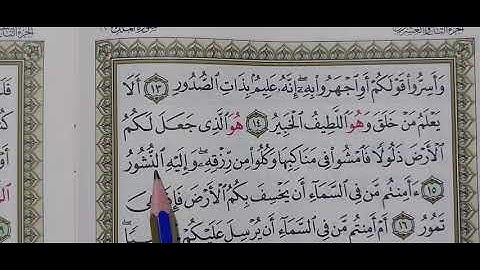 وَأَسِرُّوا۟ قَوْلَكُمْ أَوِ ٱجْهَرُوا۟ بِهِۦٓ ۖ إِنَّهُۥ عَلِيمٌۢ بِذَاتِ ٱلصُّدُورِ ١٣ أَلَا
يَعْلَمُ مَنْ خَلَقَ وَهُوَ ٱللَّطِيفُ ٱلْخَبِيرُ ١٤ هُوَ ٱلَّذِى جَعَلَ لَكُمُ
ٱلْأَرْضَ ذَلُولًا فَٱمْشُوا۟ فِى مَنَاكِبِهَا وَكُلُوا۟ مِن رِّزْقِهِۦ ۖ وَإِلَيْهِ ٱلنُّشُورُ
١٥ ءَأَمِنتُم مَّن فِى ٱلسَّمَآءِ أَن يَخْسِفَ بِكُمُ ٱلْأَرْضَ
تَمُورُ ١٦ أَمْ أَمِنتُم مَّن فِى ٱلسَّمَآءِ أَن يُرْسِلَ عَلَيْكُمْ